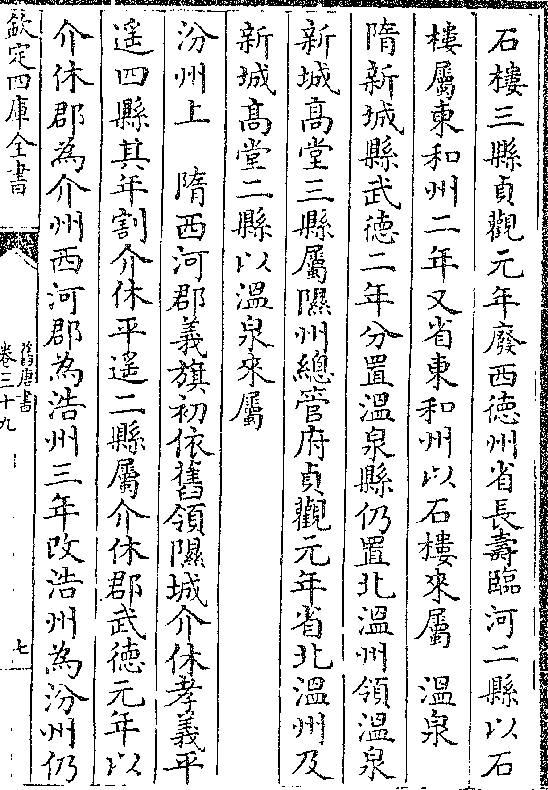 石樓三縣貞觀元年廢西德州省長壽臨河二縣以石
樓屬東和州二年又省東和州以石樓來屬　溫泉
隋新城縣武德二年分置溫泉縣仍置北溫州領溫泉
新城高堂三縣屬隰州總管府貞觀元年省北溫州及
新城高堂二縣以溫泉來屬
汾州上　隋西河郡義旗初依舊領隰城介休孝義平
遙四縣其年割介休平遙二縣屬介休郡武德元年以
介休郡為介州西河郡為浩州三年改浩州為汾州仍
欽定四庫全書
舊唐書
卷三十九
七